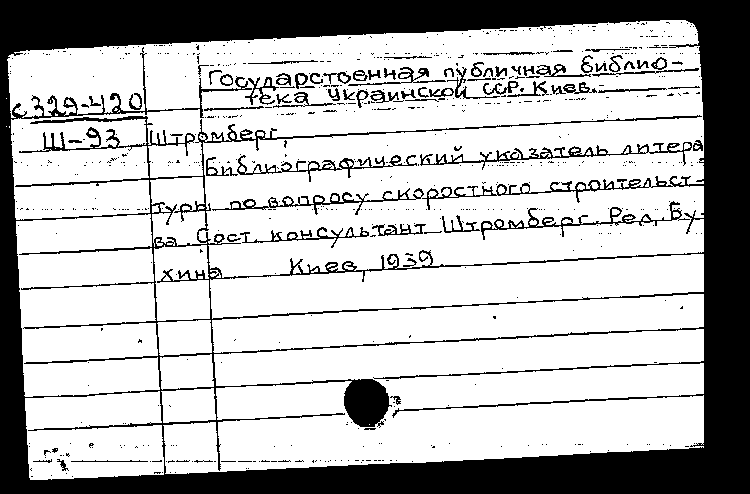 Государственная публичная библио-
тека Украинской ССР. Киев.
с 329-420
Ш-93
Штромберг,
Библиографический указатель литера
туры по вопросу скоростного строительст-
ва. Сост. консультант Штромберг. Ред. Бу-
хина Киев, 1939.